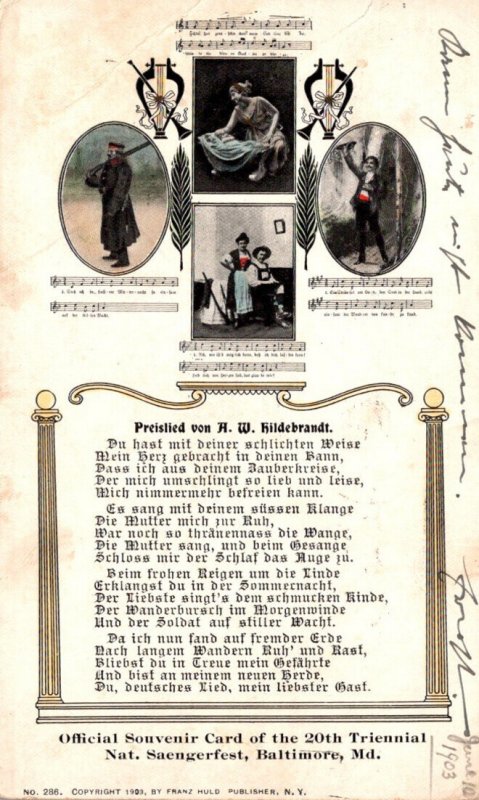 Preislied von A. W. Hildebrandt.
Du hast mit deiner schlichten Weise
Mein Herz gebracht in deinen Bann,
Dass ich aus deinem Zauberkreise,
Der mich umschlingt so lieb und leise,
Mich nimmermehr befreien kann.
Es sang mit deinem süssen Klange
Die Mutter mich zur Ruh,
War noch so thränennass die Wange,
Die Mutter sang, und beim Gesange
Schloss mir der Schlaf das Auge zu.
Beim frohen Reigen um die Linde
Erklangst du in der Sommernacht,
Der Liebste singt's dem schmucken Kinde,
Der Wanderbursch im Morgenwinde
Und der Soldat auf stiller Wacht.
Da ich nun fand auf fremder Erde
Nach langem Wandern Ruh' und Rast,
Bliebst du in Treue mein Gefährte
Und bist an meinem neuen Herde,
Du, deutsches Lied, mein liebster Gast.
Official Souvenir Card of the 20th Triennial
Nat. Saengerfest, Baltimore, Md.
NO. 286. COPYRIGHT 1903, BY FRANZ HULD PUBLISHER, N. Y.
nicht kommen.
June 10
1903